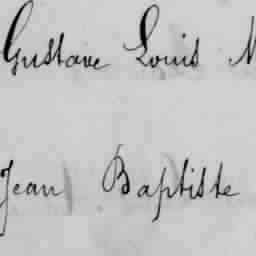 Gustave Louis
Jean Baptiste